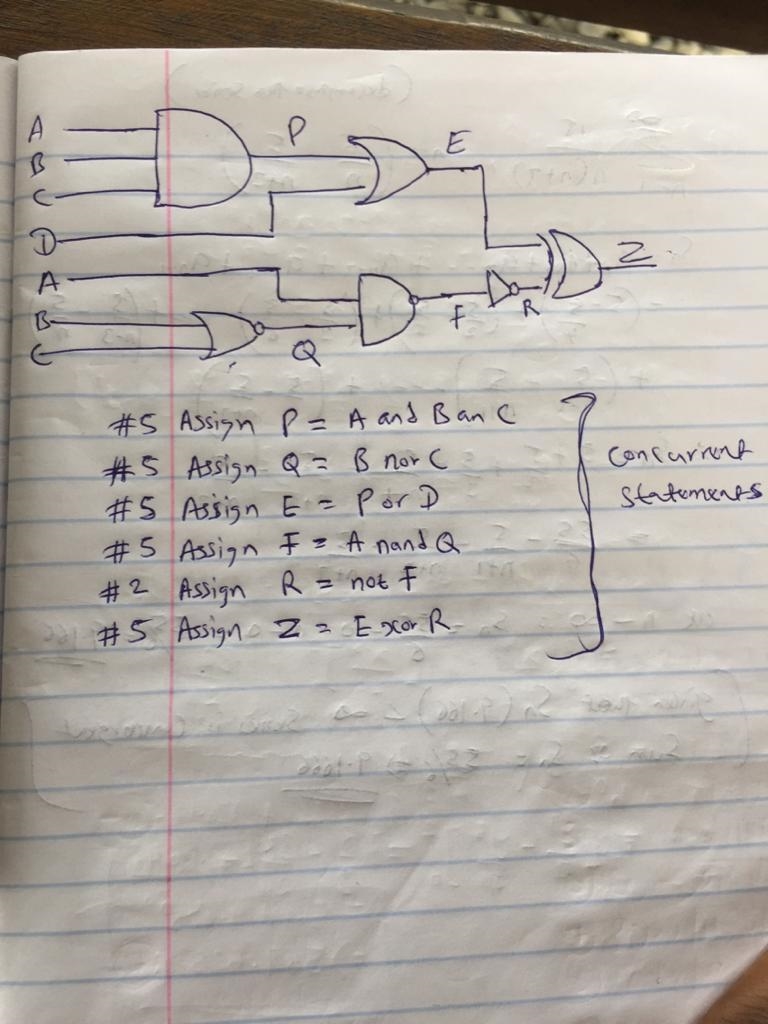 A
B
C
D
A
B
C
P
E
Z
Q
F
R
#5 Assign P = A and B an C
#5 Assign Q = B nor C
#5 Assign E = P or D
#5 Assign F = A nand Q
#2 Assign R = not F
#5 Assign Z = E xor R
Concurrent
Statements